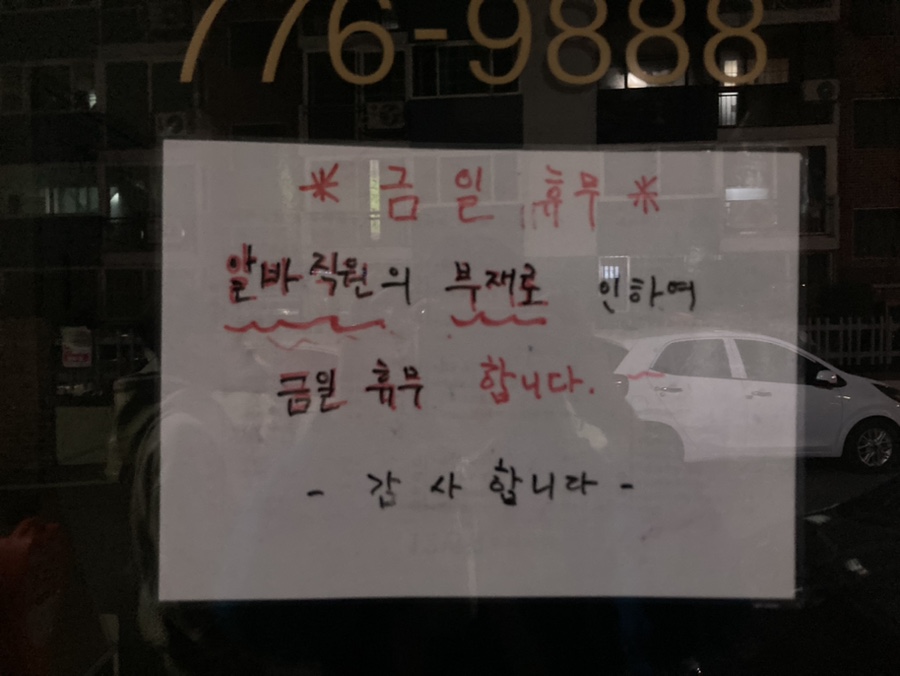 776-9888
* 금일 휴무 *
알바직원의 부재로 인하여
금일 휴무 합니다.
- 감사합니다 -